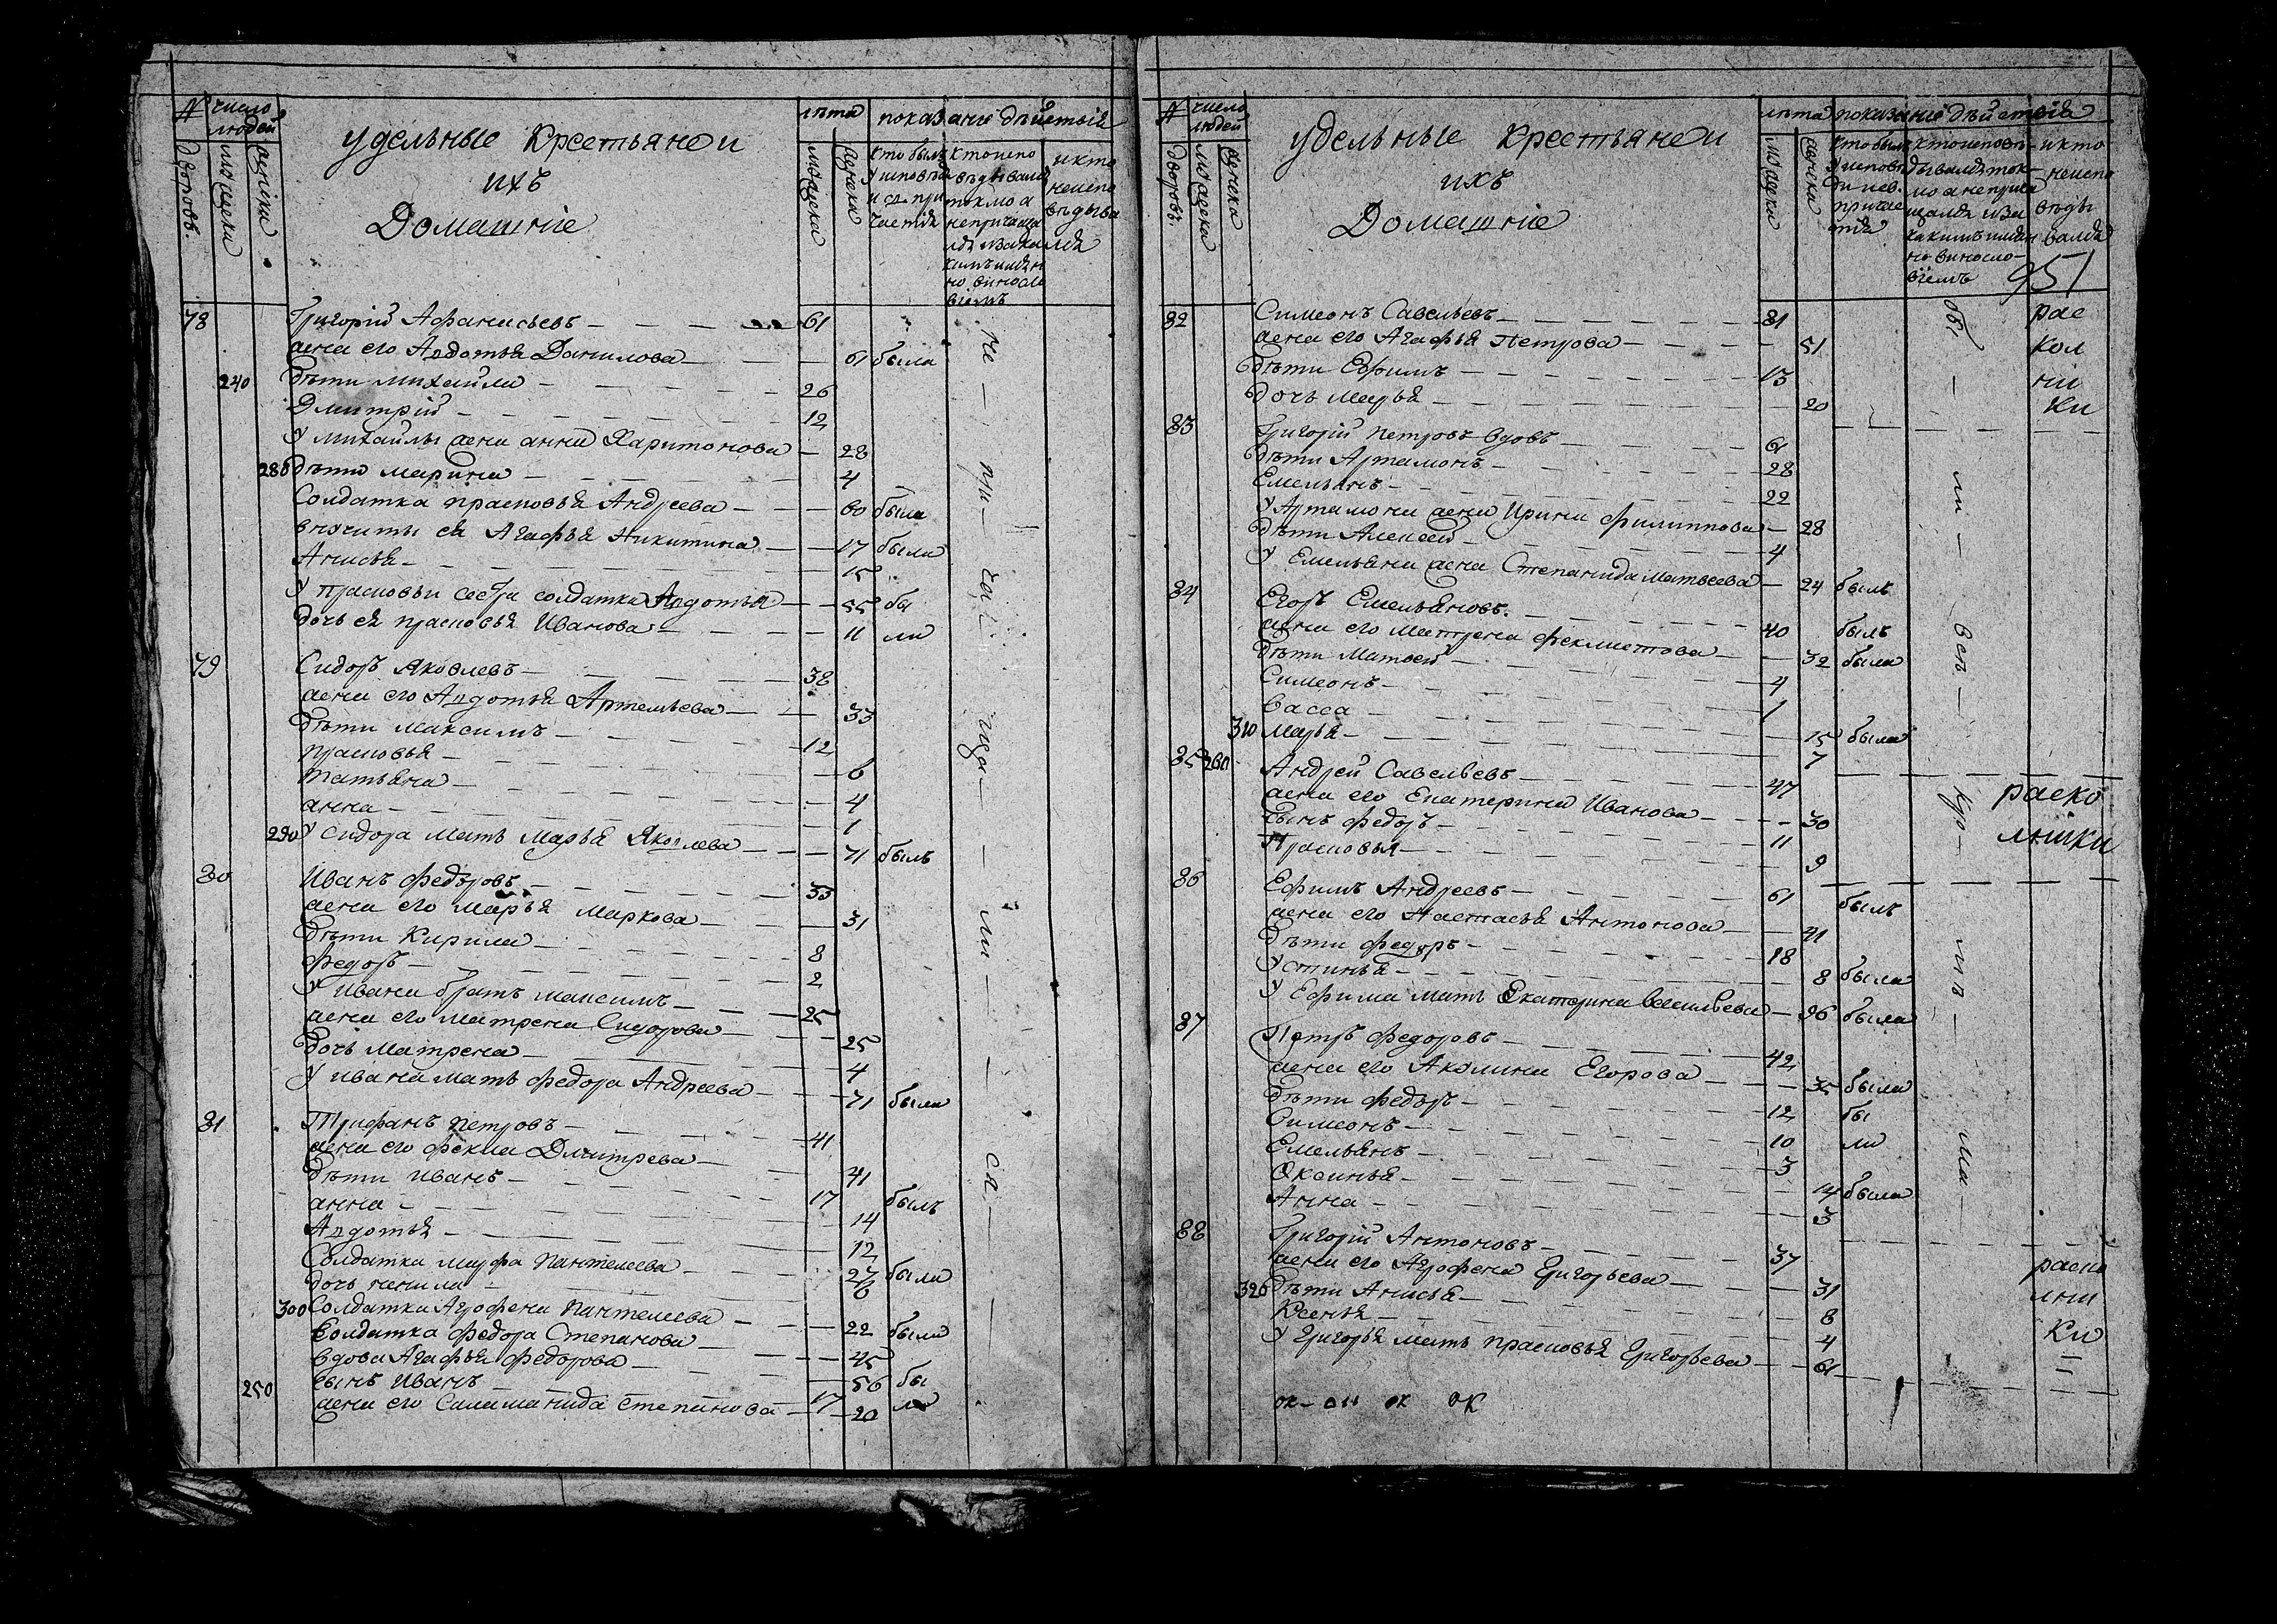 N число людей
дворовъ. мужеска женска
удельные Крестьяне и
ихъ
Домашніе
лѣта
мужеска женска
показаніе дѣйствія
кто былъ у исповѣди и св. причастія
кто исповѣдывался токмо а непричащался и за какимъ имянно винословіемъ
и кто неисповѣдывался
78 Григорій Афанасьевъ 61
жена его Авдотья Данилова 61 была
240 дѣти михайла 26
Дмитрій 12
у михайлы жена анна Харитонова 28
280 дѣти марина 4
Солдатка прасковья Андреева 60 была
внучиты ея Агафья Никитина 17 была
Анисья 15
у прасковьи сестра солдатка Авдотья 55 бы
дочь ея прасковья Иванова 11 ли
79 Сидоръ Яковлевъ 38
жена его Авдотья Артемьева 33
дѣти максимъ 12
прасковья 6
татьяна 4
анна 1
290 у сидора мать марья Яковлева 71 былъ
80 Иванъ федоровъ 33
жена его марья маркова 31
дѣти Кирила 8
федоръ 2
у ивана братъ максимъ 25
жена его матрена Сидорова 25
дочь матрена 4
у ивана мать федора Андреева 71 была
81 Трифанъ петровъ 41
жена его фекла Дмитрева 41
дѣти иванъ 17 былъ
анна 14
Авдотья 12
Солдатка марфа пантелеева 27 была
дочь ненила 6
300 Солдатка Агрофена пантелеева 22 была
Солдатка федора Степанова 45
вдова Агафья федорова 56 бы
250 сынъ Иванъ 17 ли
жена его Саламанида степанова 20
не — при — ча — ща — ли — ся —
N число людей
дворовъ. мужеска женска
удельные крестьяне и
ихъ
Домашніе
лѣта
мужеска женска
показаніе дѣйствія
кто былъ у исповѣди и св. причастія
кто исповѣдывался токмо а непричащался и за какимъ имянно винословіемъ
и кто неисповѣдывался
951
82 Симеонъ Савельевъ 81 рас
жена его Агафья петрова 51 кол
дѣти Ефимъ 13 ни
дочь марья 20 ки
83 Григорій петровъ вдовъ 61
дѣти Артамонъ 28
Емельянъ 22
у Артамона жена Ирина филиппова 28
дѣти Алексей 4
у Емельяна жена Степанида матвеева 24 былъ
84 Егоръ Емельяновъ 40 былъ
жена его матрена феклистова 32 была
дѣти матвей 4
Симеонъ 1
васса 15 была
310 марья 7
85 260 Андрей Савельевъ 47 раско
жена его Екатерина Иванова 30 льники
сынъ федоръ 11
Прасковья 9
86 Ефимъ Андреевъ 61 былъ
жена его Настасья Антонова 41
дѣти федоръ 18
устинья 8 была
у Ефима мать Екатерина васильева 96 была
87 Петръ федоровъ 42
жена его Акулина Егорова 35 была
дѣти федоръ 12 бы
Симеонъ 10 ли
Емельянъ 3
Оксинья 14 была
Анна 3
88 Григорій Антоновъ 37
жена его Агрофена Григорьева 31 раско
320 дѣти Анисья 8 льни
Ксенья 4 ки
у Григорья мать прасковья Григорьева 61
бы — ли — всѣ —